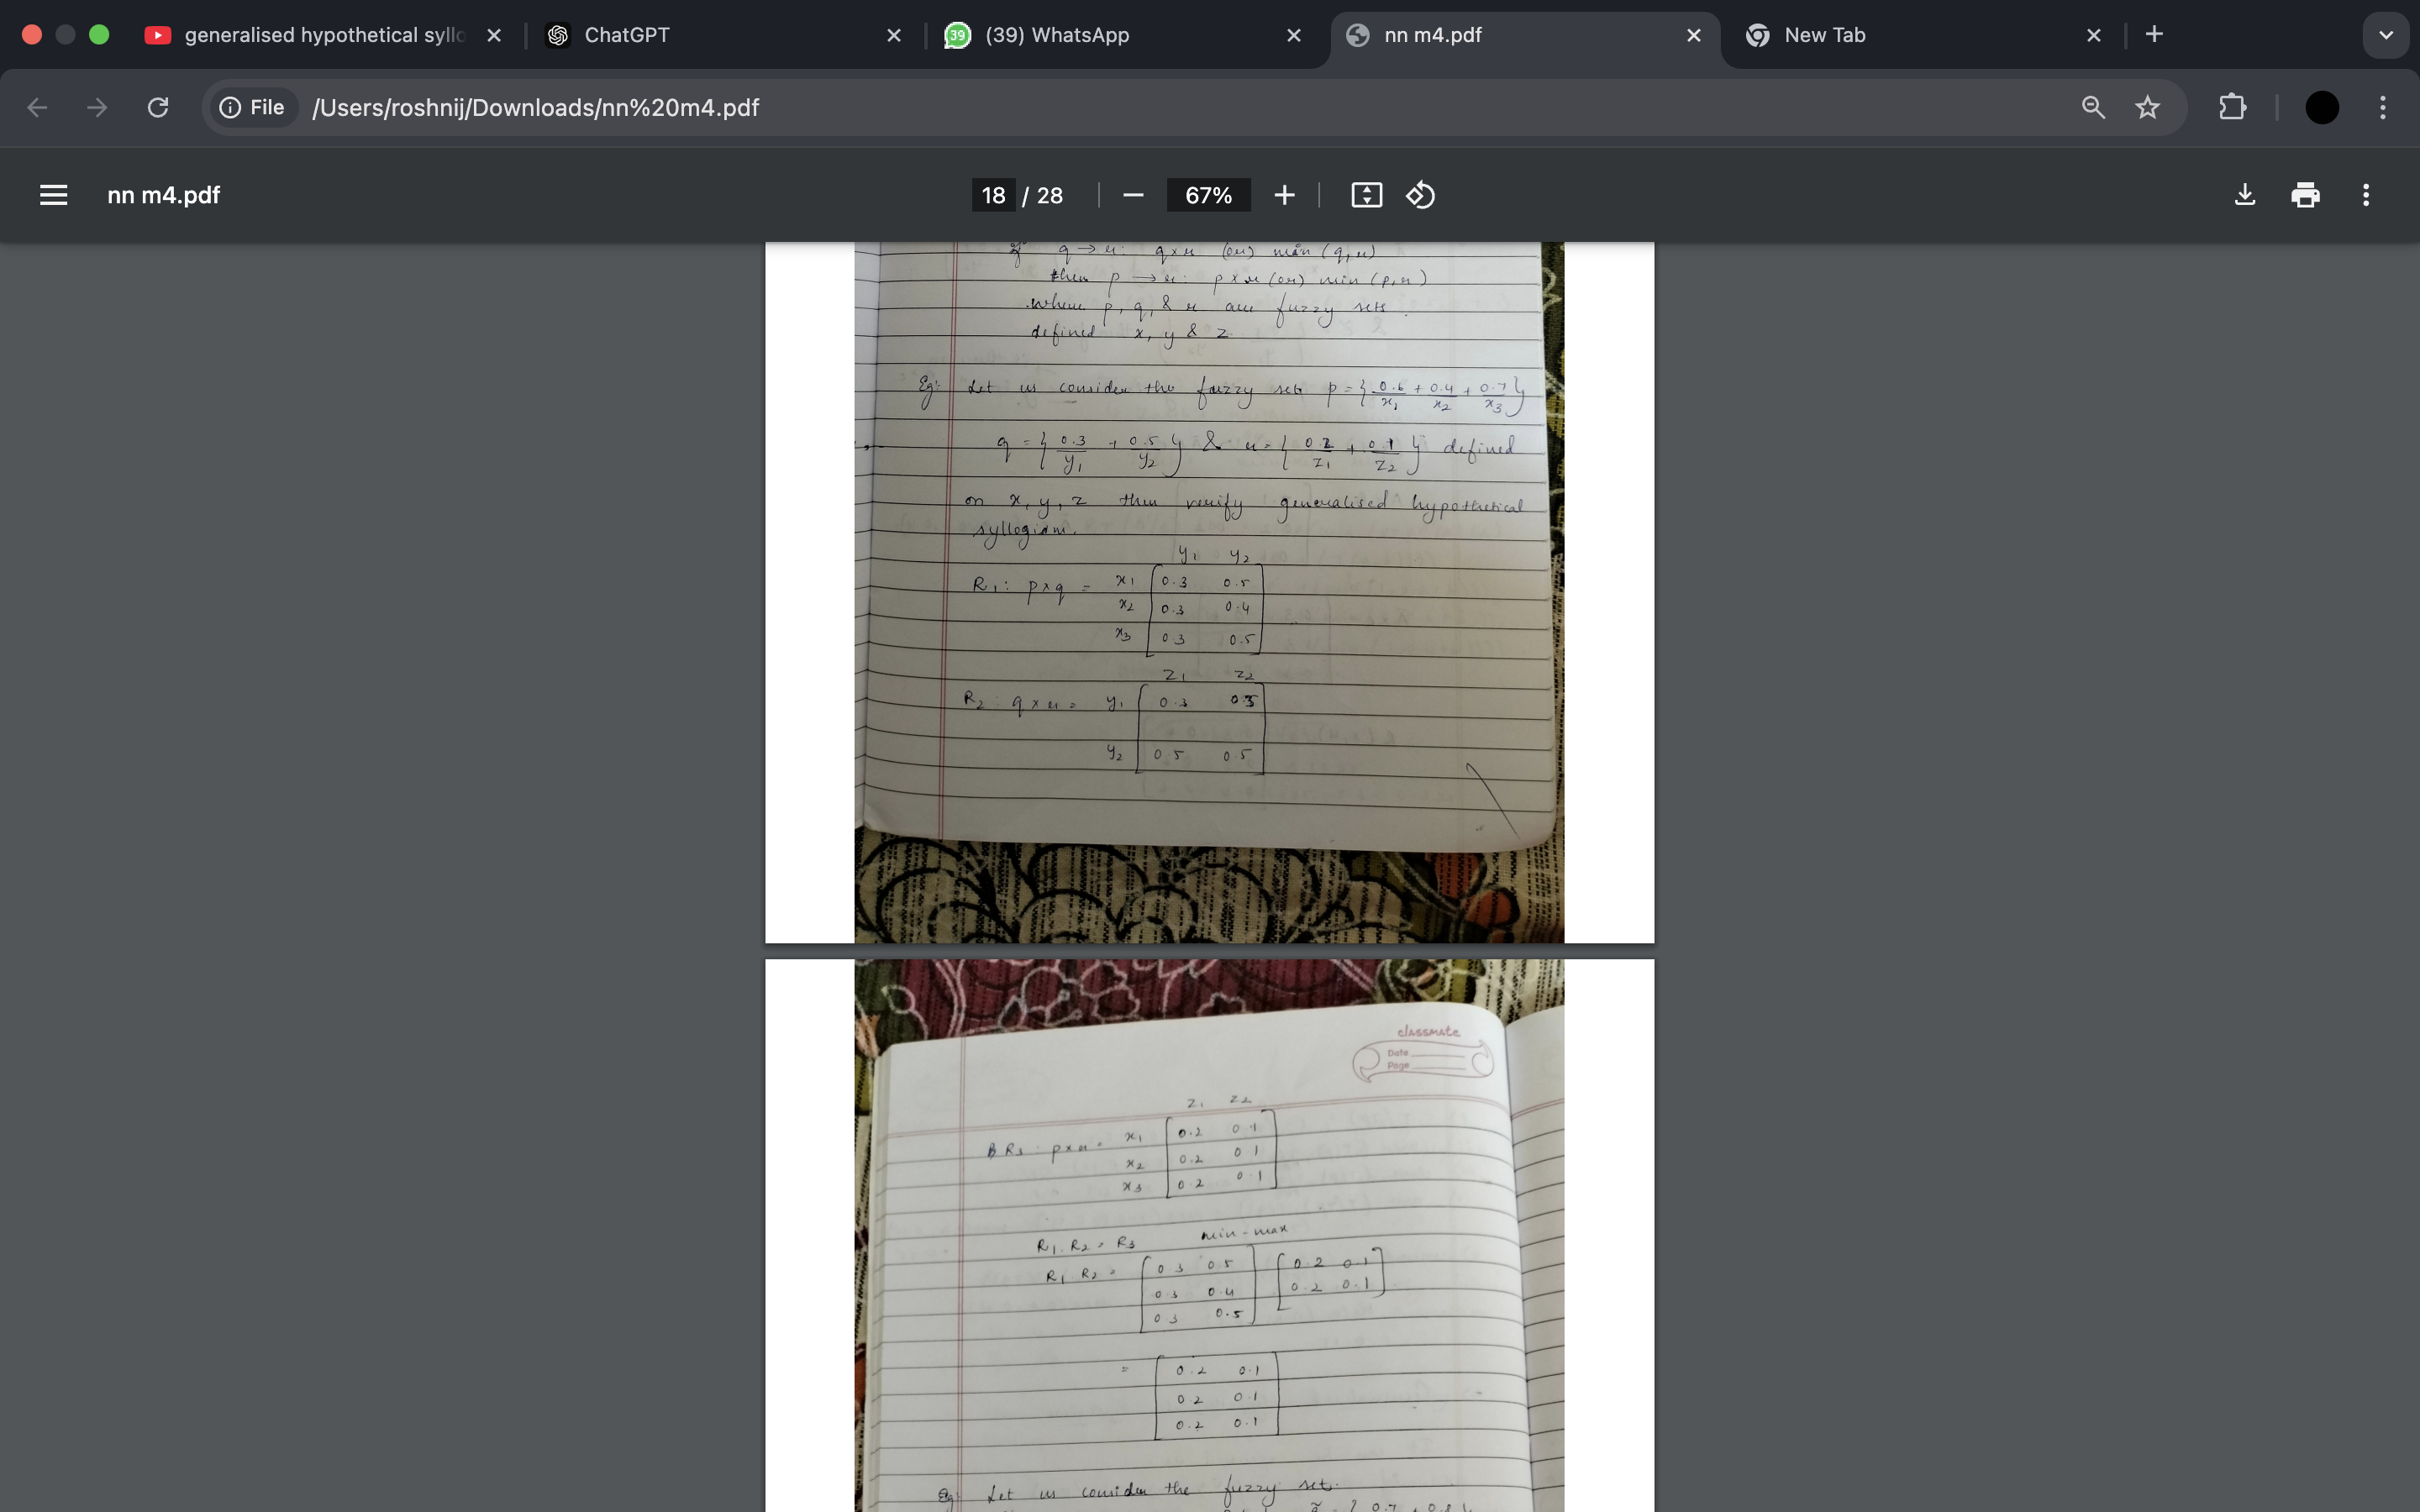 generalised hypothetical syllo
ChatGPT
39
(39) WhatsApp
nn m4.pdf
New Tab
File
/Users/roshnij/Downloads/nn%20m4.pdf
nn m4.pdf
18 / 28
67%
q → r: q×r (or) min (q,r)
then p → r: p×r (or) min (p,r)
where p, q, & r are fuzzy sets
defined x, y & z
Eg: Let us consider the fuzzy set p = { 0.6/x1 + 0.4/x2 + 0.7/x3 }
q = { 0.3/y1 + 0.5/y2 } & r = { 0.2/z1 + 0.1/z2 } defined
on x, y, z then verify generalised hypothetical
syllogism.
y1 y2
R1: p×q = x1 0.3 0.5
x2 0.3 0.4
x3 0.3 0.5
z1 z2
R2: q×r = y1 0.3 0.3
y2 0.5 0.5
classmate
Date
Page
z1 z2
R3: p×r = x1 0.2 0.1
x2 0.2 0.1
x3 0.2 0.1
R1. R2 = R3 min-max
R1 R2 = 0.3 0.5 0.2 0.1
0.3 0.4 0.2 0.1
0.3 0.5
= 0.2 0.1
0.2 0.1
0.2 0.1
Eg: Let us consider the fuzzy set.